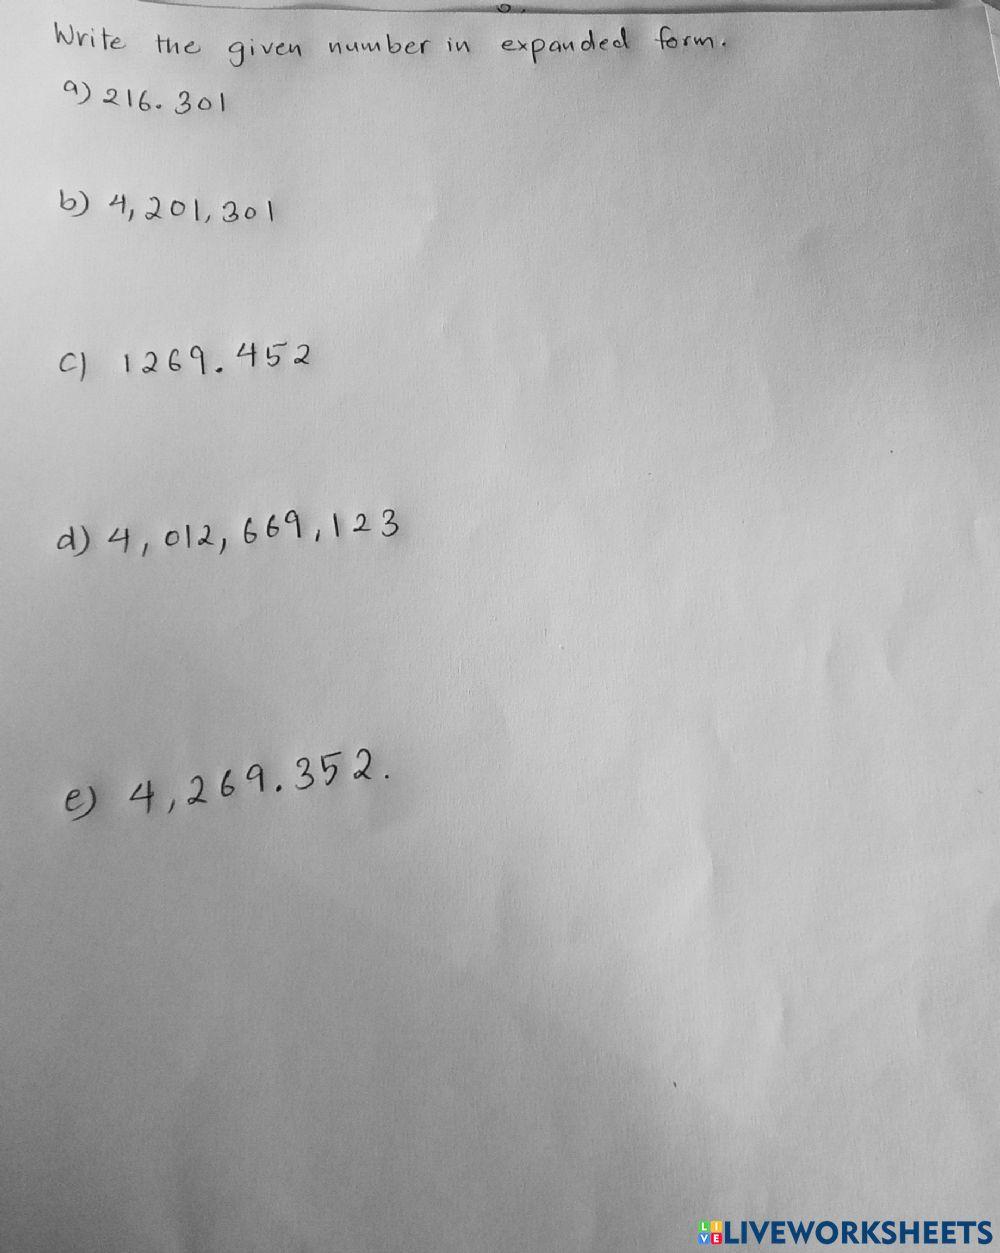 Write the given number in expanded form.
a) 216.301
b) 4,201,301
c) 1269.452
d) 4,012,669,123
e) 4,269.352.
LIVEWORKSHEETS